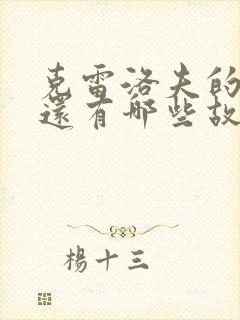 克雷洛夫的
還有哪些故
楊十三